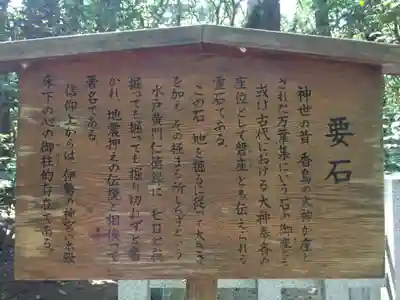 要石
神世の昔 香島の大神が座と
された万葉集にいう石の御座とも
或は古代における大神奉斎の
座位として磐座とも伝えられる
霊石である。
この石 地を掘るに従って大きさ
を加え その極まる所しらずという
水戸黄門仁徳録に 七日七夜
掘っても掘っても掘り切れずと書
かれ、地震押えの伝説と相俟って
著名である。
信仰上からは 伊勢の神宮の本殿
床下の心の御柱的存在である。